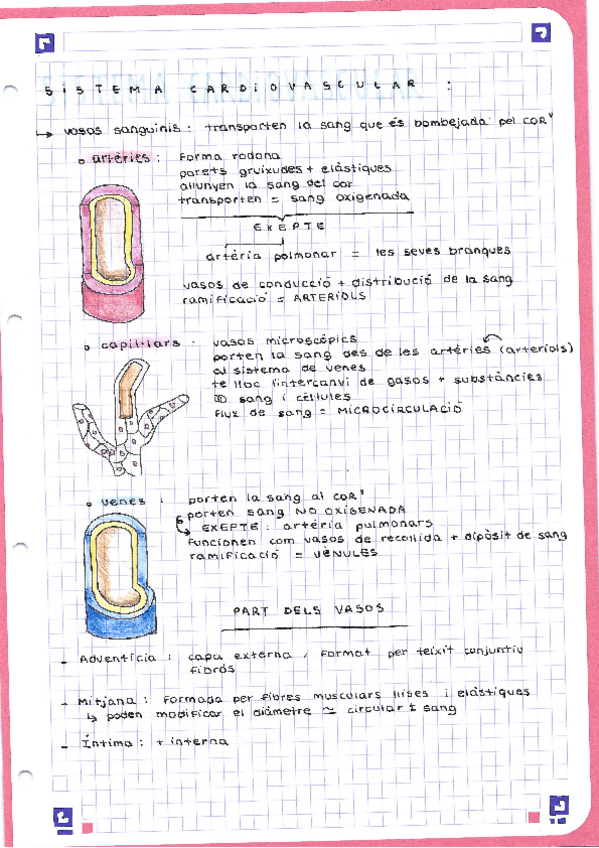 SISTEMA CARDIOVASCULAR :
↳ vasos sanguinis : transporten la sang que és bombejada pel COR
artèries : Forma rodona
parets gruixudes + elàstiques
allunyen la sang del cor
transporten = sang oxigenada
EXEPTE
artèria pulmonar = les seves branques
vasos de conducció + distribució de la sang
ramificació = ARTERIOLS
capil·lars : vasos microscòpics
porten la sang des de les artèries (arteriols)
al sistema de venes
te lloc l'intercanvi de gasos + substàncies
sang i cèl·lules
Flux de sang = MICROCIRCULACIÓ
venes : porten la sang al COR
porten sang NO OXIGENADA
↳ EXEPTE : artèria pulmonars
Funcionen com vasos de recollida + dipòsit de sang
ramificació = VÈNULES
PART DELS VASOS
- Adventícia : capa externa, Format per teixit conjuntiu
fibrós
- Mitjana : Formada per fibres musculars llises i elàstiques
↳ poden modificar el diàmetre ≈ circular ± sang
- Íntima : + interna